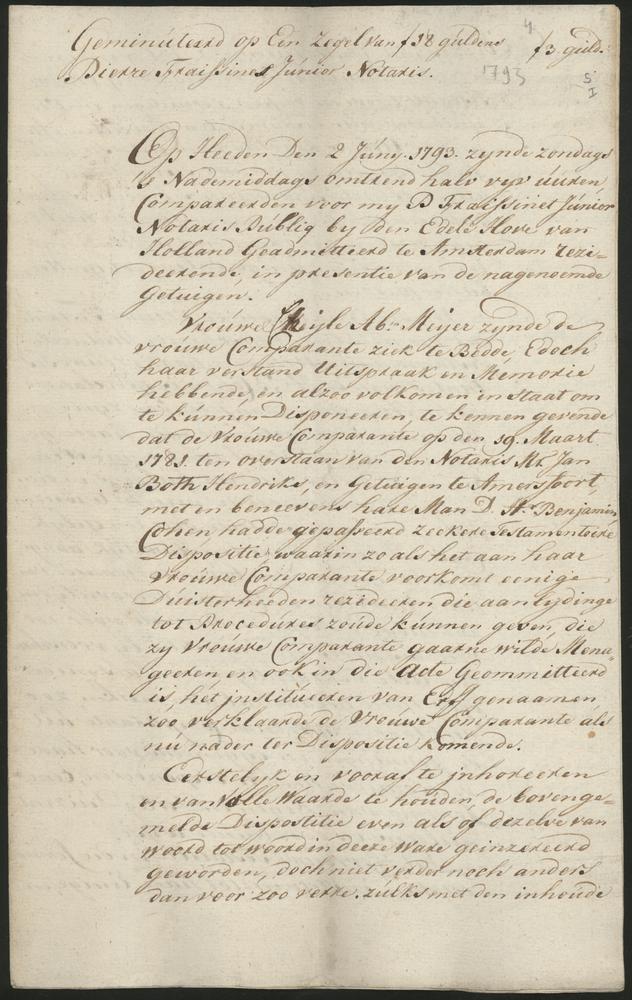 Geminuteerd op Een Zegel van f 18 guldens f 3 guld:
Pierre Fraissinet Junior Notaris.
4
793
5
I
Op Heeden Den 2 Juny. 1793. zynde zondags
's Nademiddags omtrend halv vyv uuren
Compareerden voor my P Fraissinet Junior
Notaris Publiq by den Edele Hove van
Holland Geadmitteerd te Amsterdam rezi-
deerende, in presentie van de nagenoemde
Getuigen.
Vrouwe Cheijle Abm Meijer zynde de
vrouwe Comparante ziek te Bedde, Edoch
haar verstand Uitspraak en Memorie
hebbende, en alzoo volkomen in staat om
te kunnen Disponeeren, te kennen gevende
dat de Vrouwe Comparante op den 19. Maart
1781. ten overstaan van den Notaris Mr. Jan
Both Hendriks, en Getuigen te Amersfoort,
met en beneevens hare Man D. Hr. Benjamin
Cohen hadde gepasseerd zeekere Testamentoire
Dispositie waarin zo als het aan haar
Vrouwe Comparante voorkomt eenige
Duisterheeden rezideeren die aanleydinge
tot Procedures zoude kunnen geven, die
zy Vrouwe Comparante gaarne wilde Mena-
geeren, en ook in die Acte Geommitteerd
is, het jnstitueeren van Erfgenaamen
zoo verklaarde de Vrouwe Comparante als
nu nader ter Dispositie komende.
Eerstelyk en vooraf te jnhoreeren
en van volle Waarde te houden, de bovenge-
melde Dispostitie even als of dezelve van
woord tot woord in deeze ware geinzereerd
geworden, doch niet verder noch anders
dan voor zoo verre zulks met den inhoude